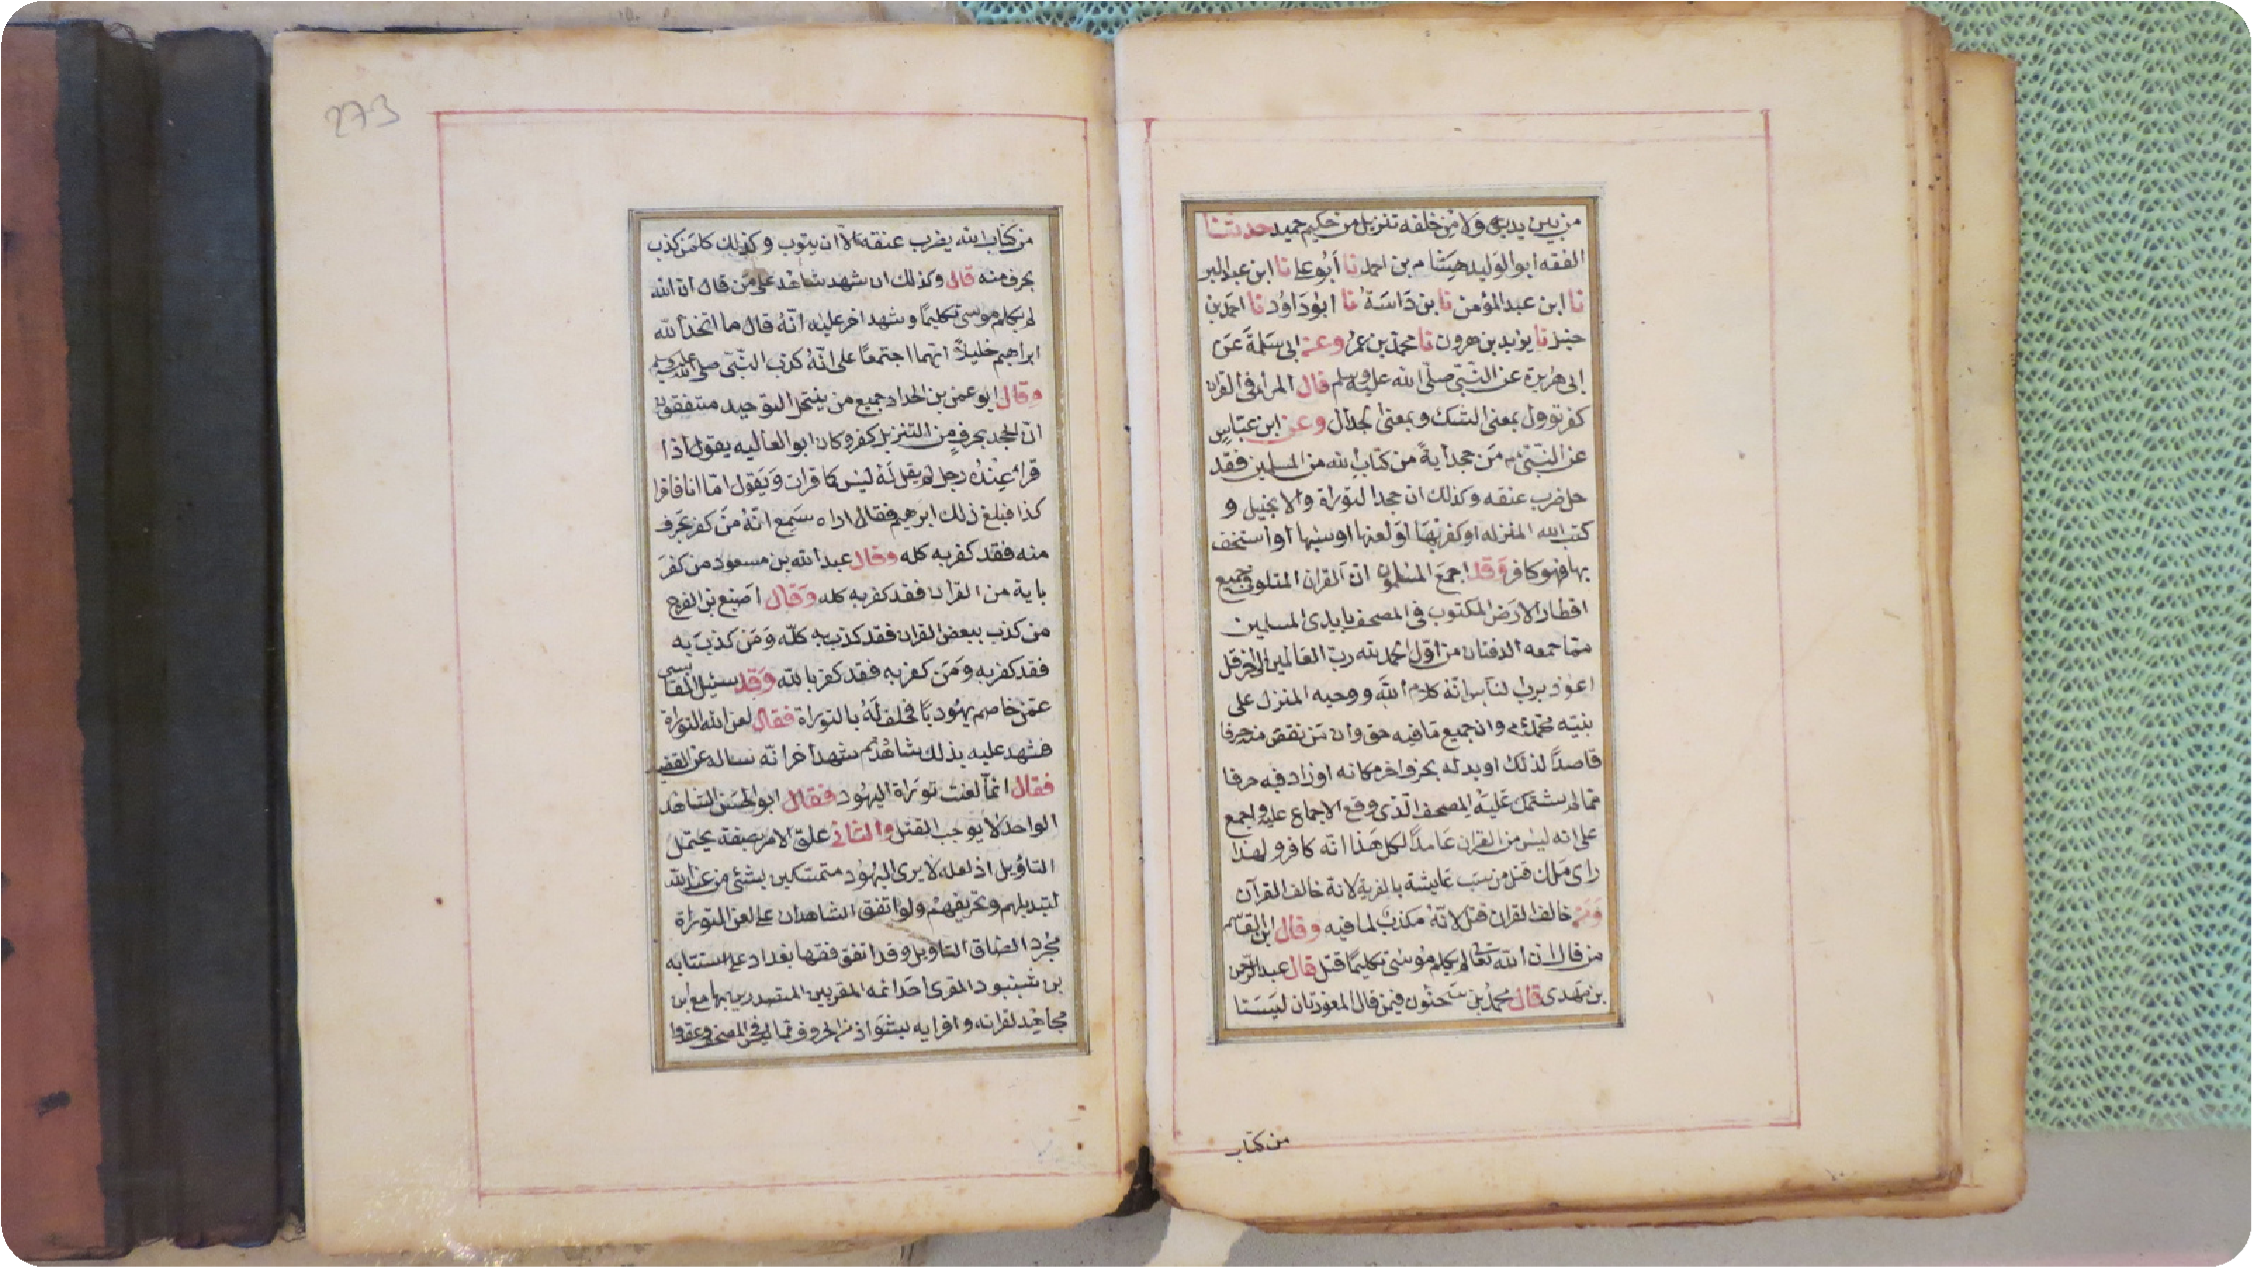 من بين يديه ولا من خلفه تنزيل من حكيم حميد حدثنا
الفقه ابو الوليد هشام بن احمد نا أبو على نا ابن عبد البر
نا ابن عبد المؤمن نا بن داسة نا ابو داود نا احمد بن
حنبل نا يزيد بن هرون نا محمد بن عمر وعن ابى سلمة عن
ابى هريرة عن النبى صلى الله عليه وسلم قال المراء فى القران
كفر توول بمعنى الشك وبمعنى الجدال وعن ابن عباس
عن النبى من جحد أية من كتاب الله من المسلمين فقد
حل ضرب عنقه وكذلك ان جحد التوراة والانجيل و
كتب الله المنزله او كفر بها او لعنها او سبها او استخف
بها فهو كافر وقد اجمع المسلمون ان القران المتلو فى جميع
اقطار الارض المكتوب فى المصحف بايدى المسلمين
مما جمعه الدفتان من اول الحمد لله رب العالمين الى اخر قل
اعوذ برب الناس انه كلام الله ووحيه المنزل على
نبيه محمد وان جميع ما فيه حق وان من نقص منه حرفا
قاصدا لذلك او بدله بحرف اخر مكانه او زاد فيه حرفا
مما لم يشتمل عليه المصحف الذى وقع الاجماع عليه واجمع
على انه ليس من القران عامدا لكل هذا انه كافر ولهذا
راى ملك قتل من سب عايشة بالفرية لانه خالف القرآن
ومن خالف القران قتل لانه مكذب لما فيه وقال ابن القاسم
من قال ان الله تعالى لم يكلم موسى تكليما قتل قال عبد الرحمن
بن مهدى قال محمد بن سحنون فيمن قال المعوذتان ليستا
من كتاب
273
من كتاب الله يضرب عنقه الا ان يتوب وكذلك كل من كذب
بحرف منه قال وكذلك ان شهد شاهد على من قال ان الله
لم يكلم موسى تكليما وشهد اخر عليه انه قال ما اتخذ الله
ابراهيم خليلا انهما اجتمعا على انه كذب النبى صلى الله عليه وسلم
وقال ابو عمن بن الحداد جميع من ينتحل التوحيد متفقون
ان الجحد بحرف من التنزيل كفر وكان ابو العاليه يقول اذا
قرا عنده رجل لم يقل له ليس كما قرات ويقول اما انا فاقرا
كذا فبلغ ذلك ابرهيم فقال اراه سمع انه من كفر بحرف
منه فقد كفر به كله وقال عبد الله بن مسعود من كفر
باية من القران فقد كفر به كله وقال اصبغ بن الفرج
من كذب ببعض القران فقد كذب به كله ومن كذب به
فقد كفر به ومن كفر به فقد كفر بالله وقد سئل القابسى
عمن خاصم يهوديا فحلف له بالتوراة فقال لعن الله التوراة
فشهد عليه بذلك شاهد ثم شهد اخر انه ساله عن القضيه
فقال انما لعنت توراة اليهود فقال ابو الحسن الشاهد
الواحد لا يوجب القتل والثانى علق الامر بصفة يحتمل
التاويل اذ لعله لا يرى اليهود متمسكين بشئ من عند الله
لتبديلهم وتحريفهم ولو اتفق الشاهدان على لعن التوراة
مجرد الضاق التاويل وقد اتفق فقها بغداد على استتابه
بن شنبود المقرى احد ائمه المقريين المتصدرين بها مع ابن
مجاهد لقرانه واقرايه بشواذ من الحروف مما ليس فى المصحف وعقدوا